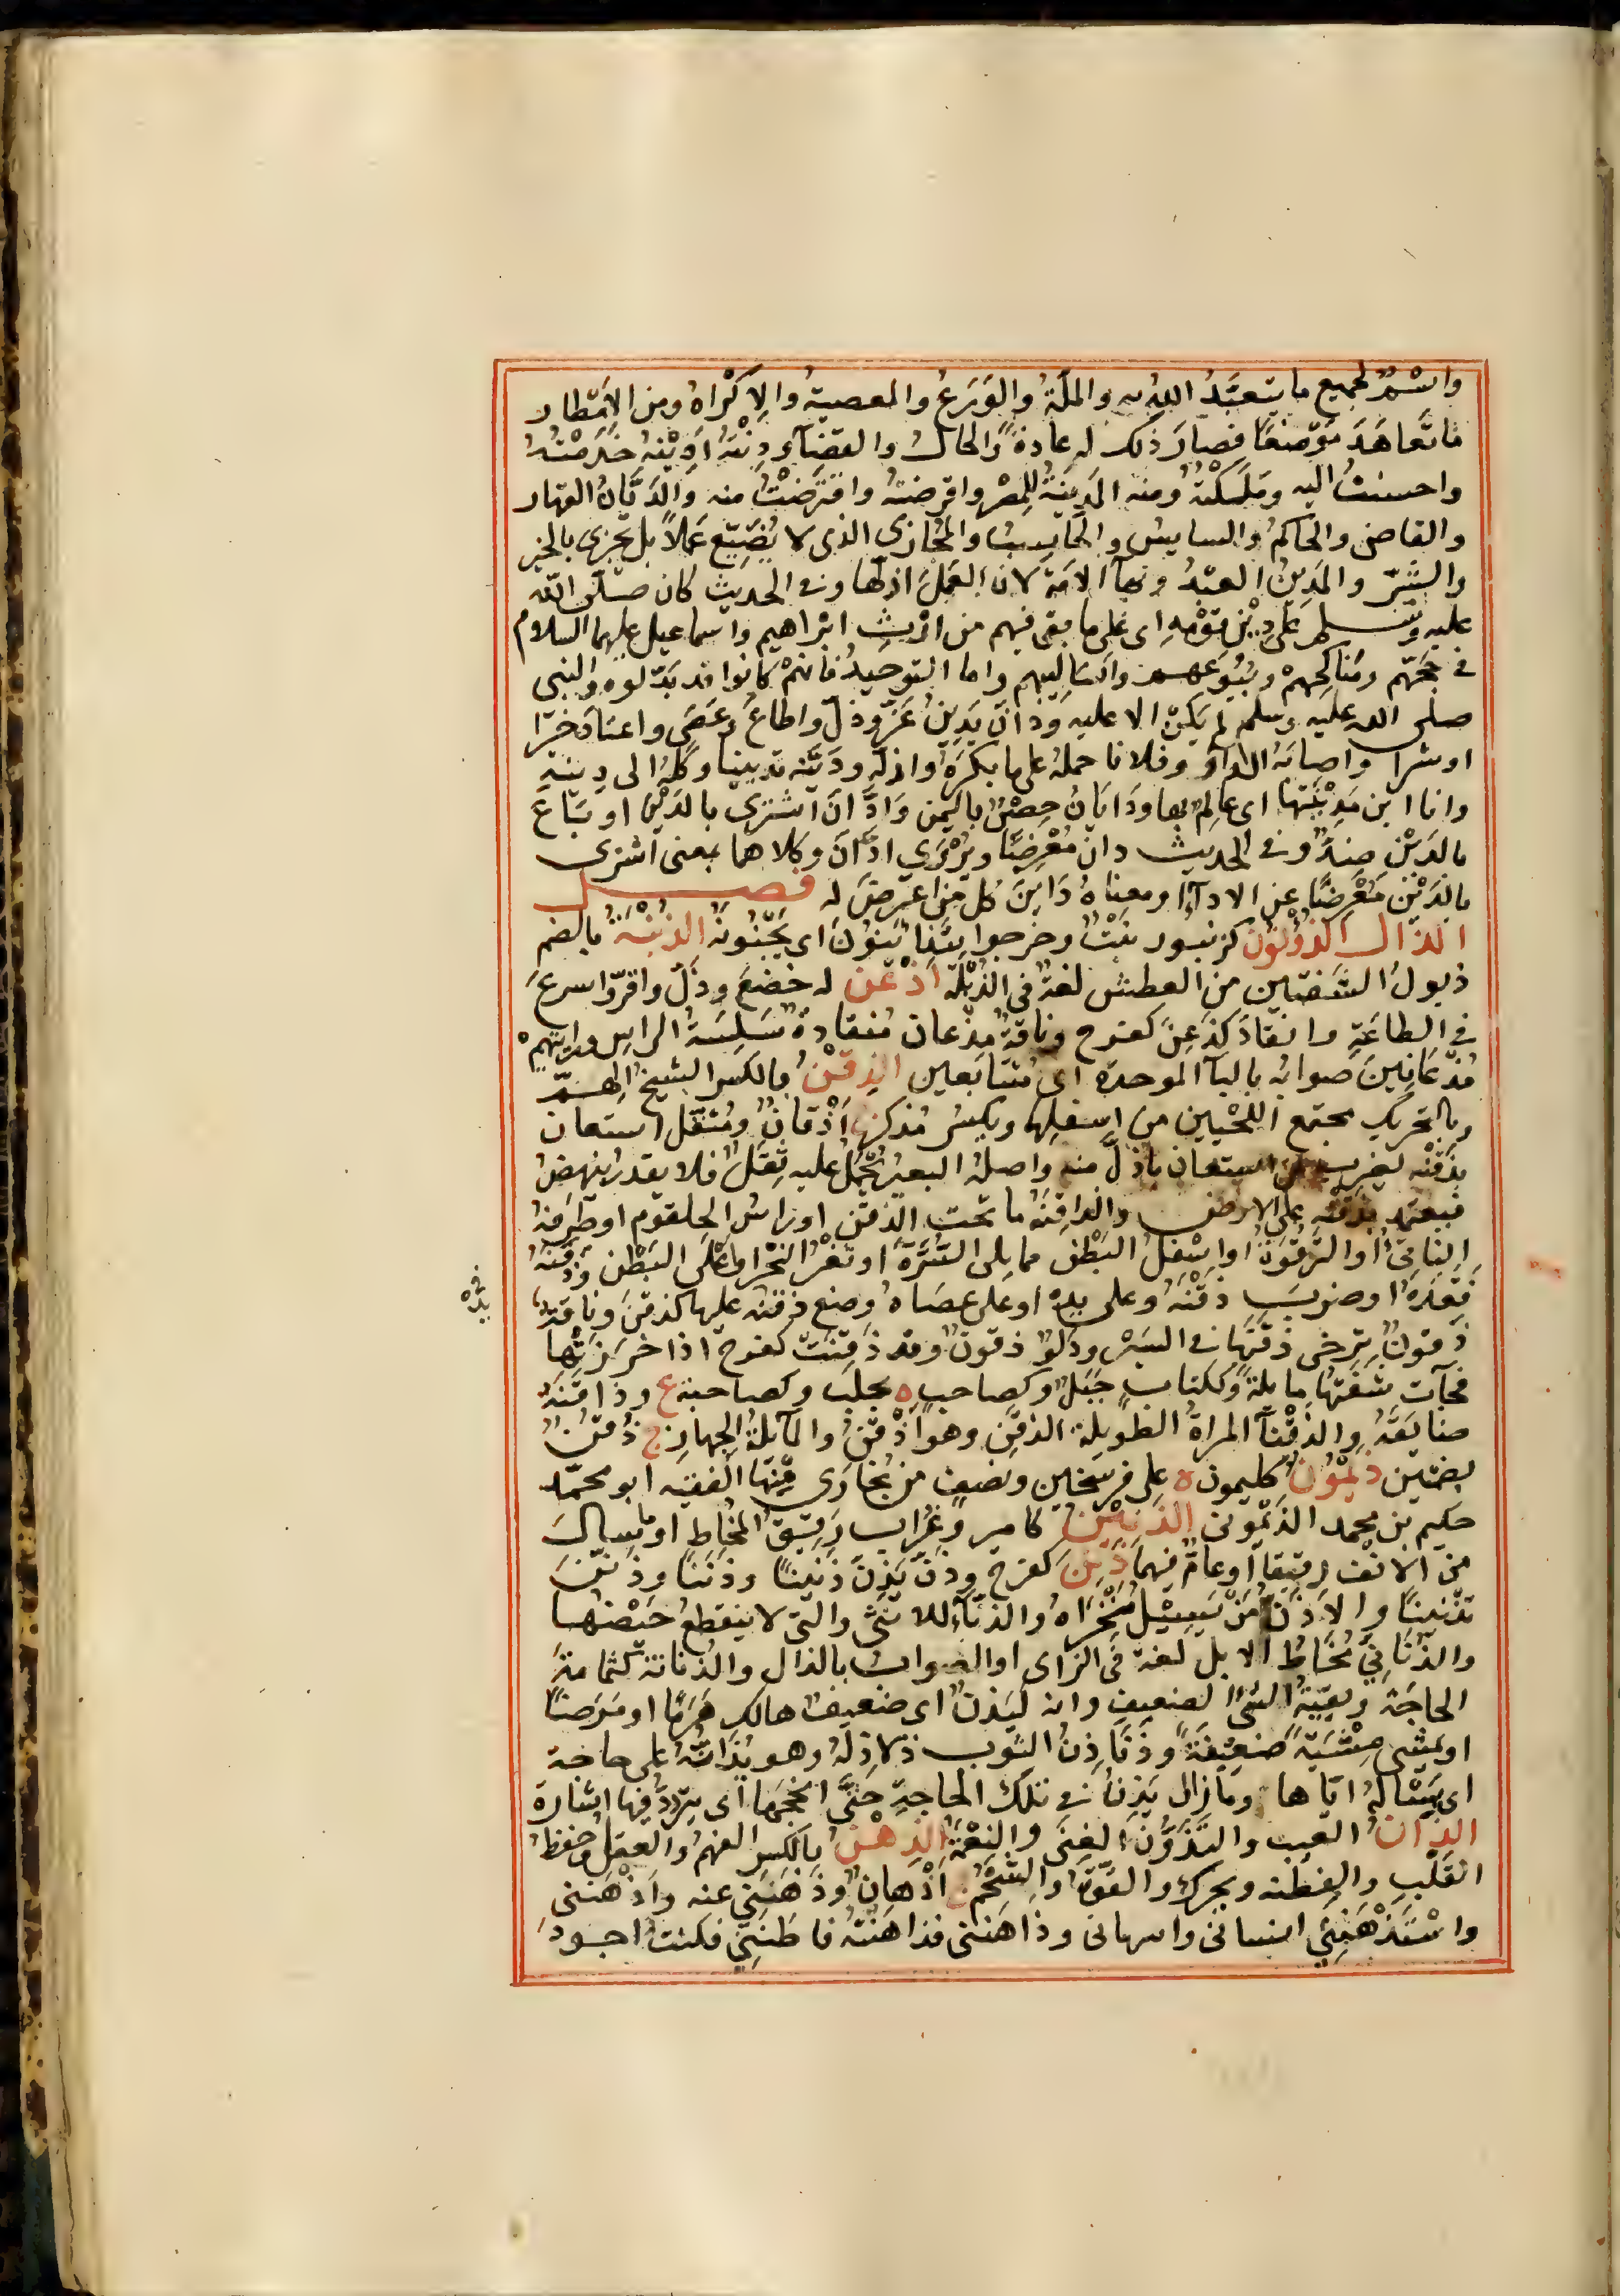 واسْمٌ لجميع ما يتعبَّدُ اللهُ به والملّةُ والوَرَعُ والمعصيةُ والاِكْراهُ ومن الامْطار
ما تَعاهَدَ مَوْضعًا فصارَ ذلك له عادةً والحالُ والقضآءُ ودِنْتُهُ اَدِيْنُه خَدَمْتُهُ
واحسنتُ اليه ومَلَكْتُهُ ومنه المَدِينَةُ للمِصْرِ واقرضتُه واقْتَرَضْتُ منه والدَّيَّانُ القهار
والقاضى والحاكمُ والسايسُ والحَاسِبُ والمُجَازِى الذى لا يُضَيِّع عَمَلاً بل يَجْزِى بالخير
والشَّرّ والمَدِينُ العبْدُ وبهآ الامَةُ لان العَمَلَ اذلّها وفى الحديث كان صلّى الله
عليه وسلم على دِيْنِ قَوْمِهِ اى على ما بقى فيهم من ارْثِ ابْراهيم واسماعيل عليهما السلام
فى حَجّهم ومَناكِحهمْ وبُيُوعهم واَسَالِيبهم واما التوحيدُ فانهمْ كانوا قد بَدّلوه والنبى
صلى الله عليه وسلم لم يَكُنْ الا عليه ودانَ يَدِينُ عَزّ وذلّ واطاعَ وعَصَى واعتادَ خيرًا
او شرًا واصابَه الدآءُ وفلانا حملهُ على ما يكرَهُ واذلّه ودَيَّنَه تديينا وكلهُ الى دِينِهِ
وانا ابن مَدِيْنَتها اى عالِمٌ بها ودَايَانُ حِصْنٌ باليمن وَادّانَ اشترى بالدَيْن او بَاعَ
بالدَيْن ضِدٌّ وفى الحديث دان مُعْرِضًا ويُرْوَى ادّانَ وكلاهما بمعنى اشترى
بالدَيْن مُعْرِضًا عن الادآءِ او معناهُ دَايَنَ كلَّ مَنِ اعترضَ له فصل
الذال الذُؤْنُونُ كزنبور نَبْتٌ وخرجوا يتَذَأْنَنُونَ اى يَجْتَنُونَهُ الذُبْنَةُ بالضم
ذبولُ الشفتين من العطش لغةٌ فى الذُبْلَة اذْعَنَ له خضعَ وذلّ واقرّ واسرعَ
فى الطاعَةِ وانقادَ كذَعِنَ كفرح وناقةٌ مِذْعان منقادةٌ سَلِسَةُ الراسِ ورايتهمْ
مُذْعَانِينَ صوابُه بالبآ الموحدة اى مُتتابعين الذِقْنُ بالكسر الشيخُ الهِمّ
وبالتحريك مجتمع اللحْيين من اسفلِها ويكسُر مُذكرٌ ج اَذْقانٌ ومُثْقَل استعان
بذَقْنِه يُضرب لمن استعان باَذلّ منه واصلهُ البعيرُ يُحْمَلُ عليه ثِقَلٌ فلا يقدر ينهضُ
فيعتمد بذقنِه على الارض والذاقِنَة ما تحت الذقن او راسُ الحلقوم او طرفُه
الناتِئُ او التّرقُوَة او اسْفلُ البَطْن مما يلى السُّرّة او ثُغْرُ النحْر او اعْلى البَطْن وذقَنَهُ
فَقَدَهُ او ضربَ ذقَنَه وعلى يده او على عصَاهُ وضع ذقنه عليها كذقّنَ وناقةٌ
ذقونٌ ترخى ذقَنَها فى السَيْر ودَلوٌ ذقونٌ وقد ذَقِنَتْ كفرح اذا خرزْتَها
فجآءت شفَتُها مايلة وككتاب جَبَلٌ وكصاحب ه بحلب وكصاحبة ع وذاقنَهُ
ضايَقَهُ والذقْنآءُ المراةُ الطويلة الذقَنِ وهو اَذْقَنُ والمآيلةُ الجهاز ج ذُقْنٌ
بضمتين ذَيْمُونُ كليمون ه على فرسخين ونصف من بُخَارَى مِنْهَا الفقيه ابو محمّد
حكيم بن محمد الذَيْمُونى الذَنِيْنُ كامير وغُرَاب رَقِيقُ المُخَاطِ او ما سالَ
من الانْف رقيقا او عامّ فيهما ذَنِنَ كفرح وذَنَّ يَذِنّ ذَنِينًا وذَنَنًا وذنّنَ
تذْنينًا والاَذَنُّ مَنْ يَسِيْلُ مَنْخَرَاهُ والذنّآءُ للانثَى والتى لا ينقطعُ حَيْضُهَا
والذُنَانِىّ مُخَاطُ الابل لغةٌ فى الزاى او الصوابُ بالذال والذُنانة كثمامة
الحاجَةُ وبقيّة الشئ الضعيف وانه ليَذِنّ اى ضعيفٌ هالك هَرَمًا او مَرَضًا
او يَمْشِى مِشْيَةً ضعِيفَةً وذنَاذِنُ الثوب ذلاذِلهُ وهو يُذَانُّه على حاجة
اى يَسْاله ايّاها وما زال يَذِنّ فى تلك الحاجةِ حتّى انجحها اى يتردّدُ فيها اشارة
الذانُ العيب والتَذَوُّنُ الغِنَى والنِعْمَةُ الذِهْنُ بالكسر الفهمُ والعقلُ وحفظُ
القَلْبِ والفِطْنَة ويحرك والقوّةُ والشَّحْم ج اَذْهانٌ وذَهَنَنِى عنه واَذْهَننى
واسْتَذْهَنَنِى انسانى والهانى وذاهَنَنى فذاهَنْتُه فاطنَنِى فكنتُ اجود
يذه